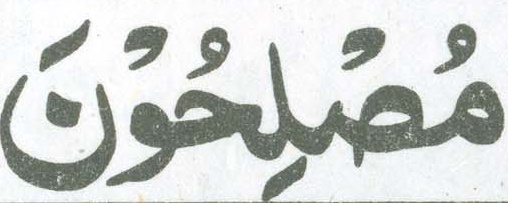 مُصْلِحُوْنَ